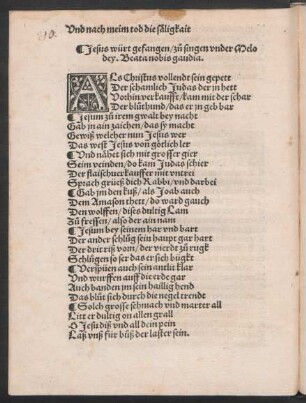 Vnd nach meim tod die säligkait
¶ Jesus würt gefangen / zů singen vnder Melo
dey. Beata nobis gaudia.
ALs Christus vollendt sein gepett
Der schamlich Judas der jn hett
Vorhin verkaufft / kam mit der schar
Der blůthund / das er jn geb bar
¶ Jesum zů irem gwalt bey nacht
Gab jn ain zaichen / das sy macht
Gewiß welcher nun Jesus wer
Das west Jesus von götlich ler
¶ Vnd nähet sich mit grosser gier
Sein veinden / do kam Judas schier
Der flaischuerkauffer mit vntrei
Sprach grüeß dich Rabbi / vnd darbei
¶ Gab jm den kuß / als Joab auch
Dem Amason thett / do ward gauch
Den wolffen / dises dultig Lam
Zů fressen / also der ain nam
¶ Jesum bey seinem har vnd bart
Der ander schlůg sein haupt gar hart
Der drit riß vorn / der vierdt zů rugk
Schlůgen so ser das er sich bůgkt
¶ Verspüen auch sein antlit klar
Vnd wurffen auff die erde gar
Auch banden jm sein hailig hend
Das blůt sich durch die negel trendt
¶ Solch grosse schmach vnd marter all
Litt er dultig on allen grall
O Jesu diß vnd all dein pein
Laß vnß für bůß der laster sein.